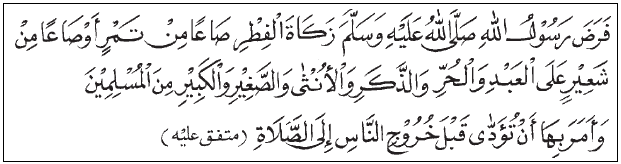 فَرَضَ رَسُوْلُ اللهِ صَلَّى اللهُ عَلَيْهِ وَسَلَّمَ زَكَاةَ الْفِطْرِ صَاعًا مِنْ تَمْرٍ أَوْصَاعًا مِنْ
شَعِيْرٍ عَلَى الْعَبْدِ وَالْحُرِّ وَالذَّكَرِ وَالْأُنْثَى وَالصَّغِيْرِ وَالْكَبِيْرِ مِنَ الْمُسْلِمِيْنَ
وَأَمَرَ بِهَا أَنْ تُؤَدَّى قَبْلَ خُرُوْجِ النَّاسِ إِلَى الصَّلَاةِ (متفق عليه)